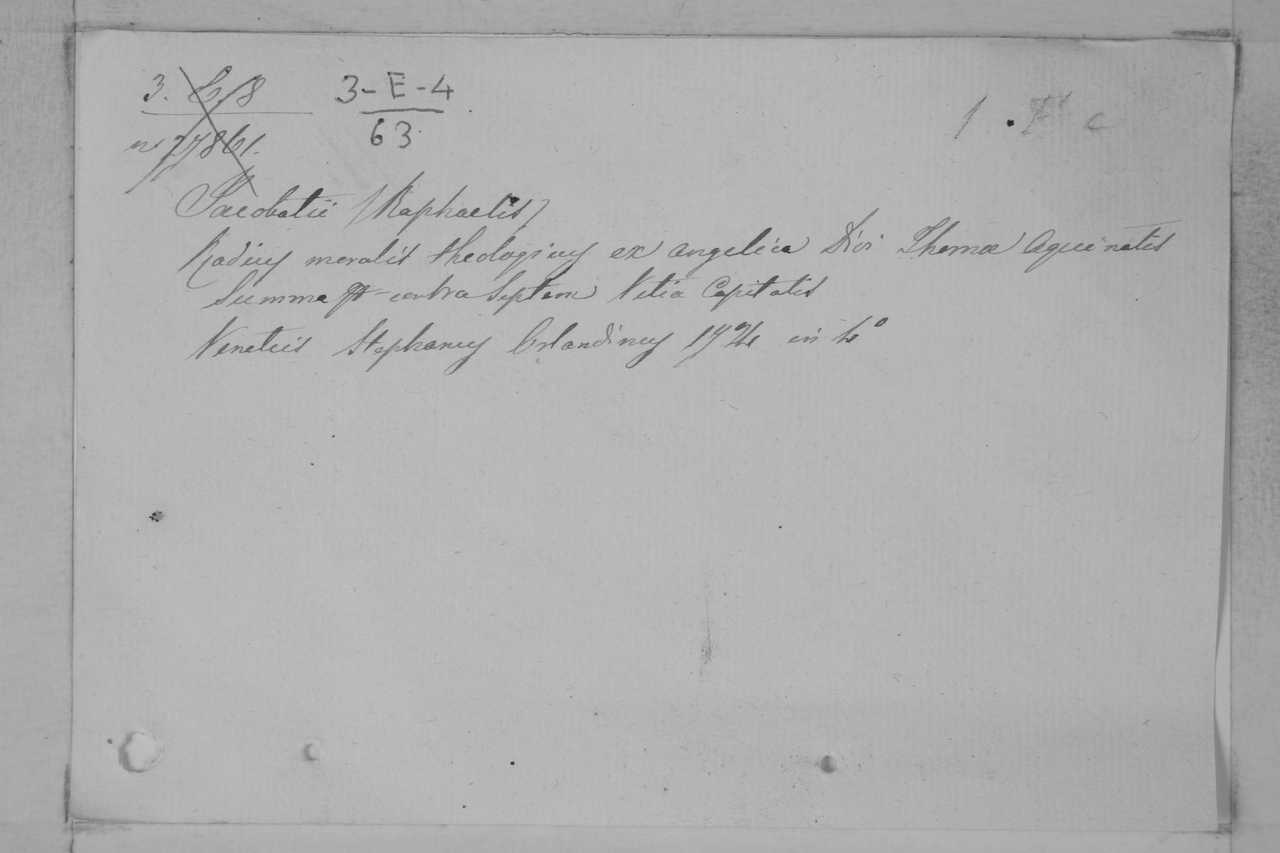 3. 6/8
3-E-4
63
1 . F c
nº 27861.
Jacobatii (Raphaelis)
Radius moralis theologicus ex angelica Divi Thomæ Aquinatis
Summa contra Septem Vitia Capitalis
Venetiis Stephanus Orlandinus 1724 in 4º